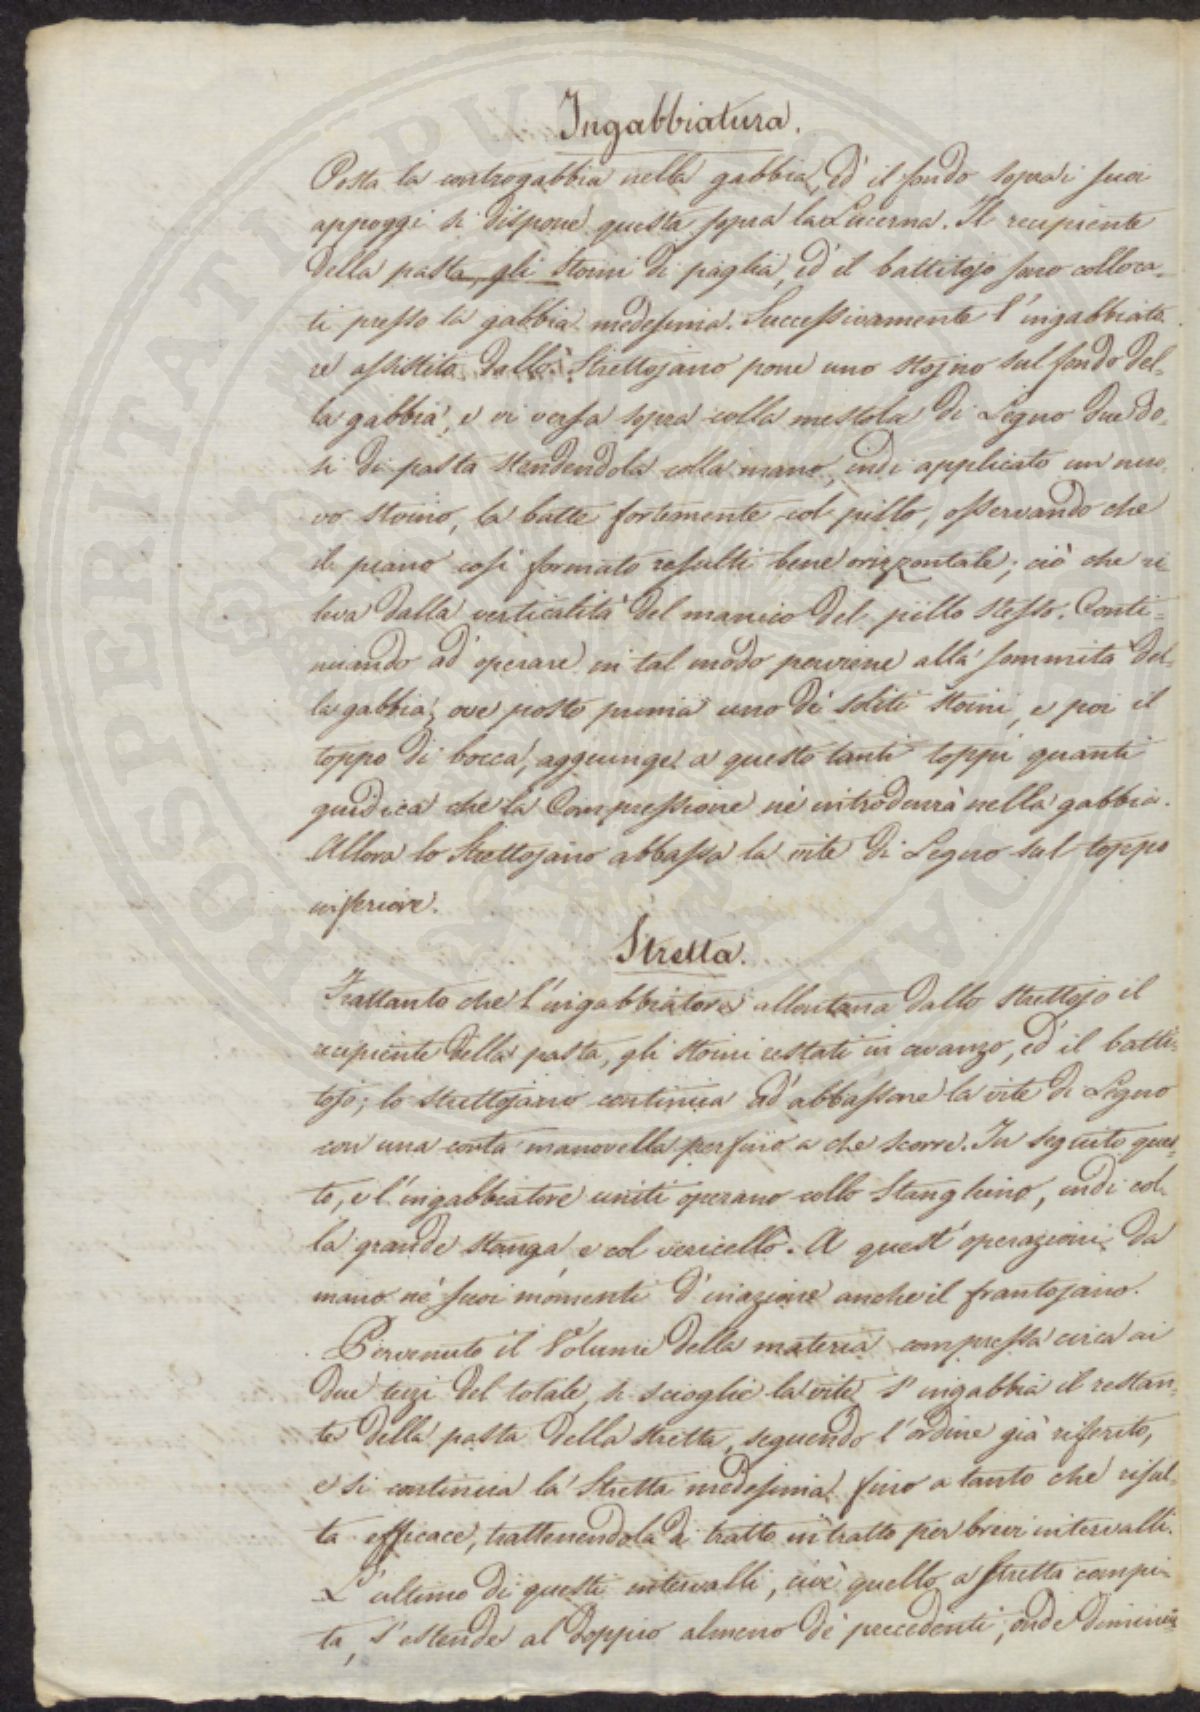 Ingabbiatura.
Posta la controgabbia nella gabbia, ed il fondo sopra i suoi
appoggi si dispone questa sopra la Lucerna. Il recipiente
della pasta, gli stoini di paglia, ed il battitojo sono colloca=
ti presso la gabbia medesima. Successivamente l'ingabbiato
re assistito dallo Strettojano pone uno stojno sul fondo del=
la gabbia, e vi versa sopra colla mestola di Legno due do=
si di pasta stendendola colla mano, indi applicato un nuo
vo stoino, la batte fortemente col pillo, osservando che
il piano così formato resulti bene orizzontale; ciò che ri
leva dalla verticalità del manico del pillo stesso. Conti=
nuando ad operare in tal modo perviene alla sommità del=
la gabbia, ove posto prima uno di soliti stoini, e poi il
toppo di bocca, aggiunge a questo tanti toppi quanti
giudica che la Compressione nè introdurrà nella gabbia.
Allora lo Strettojano abbassa la vite di Legno sul toppo
inferiore.
Stretta.
Frattanto che l'ingabbiatore allontana dallo strettojo il
recipiente della pasta, gli stoini restati in avanzo, ed il batti=
tojo; lo strettojano continua ad abbassare la vite di Legno
con una corta manovella perfino a che scorre. In seguito ques=
to, e l'ingabbiatore uniti operano collo Stanghino, indi col=
la grande stanga, e col vericello. A quest'operazioni da
mano nè suoi momenti d'inazione anche il frantojano.
Pervenuto il Volume della materia compressa circa ai
due terzi del totale, si scioglie la vite, s'ingabbia il restan=
te della pasta della stretta, seguendo l'ordine già riferito,
e si continua la Stretta medesima fino a tanto che risul=
ta efficace, trattenendola di tratto in tratto per brevi intervalli.
L'ultimo di questi intervalli, cioè quello a stretta compi=
ta, s'estende al doppio almeno dè precedenti, onde diminui=